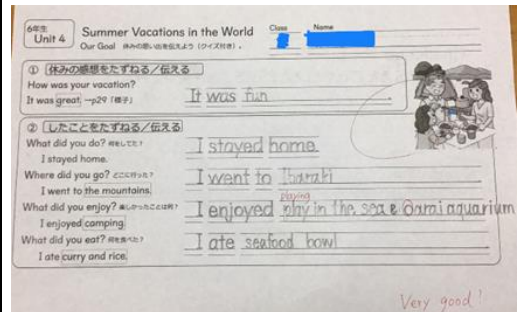 6年生
Unit 4
Summer Vacations in the World
Class
Name
Our Goal 休みの思い出を伝えよう(クイズ付き)。
① 休みの感想をたずねる/伝える
How was your vacation?
It was great. →p29「様子」
It was fun.
② したことをたずねる/伝える
What did you do? 何をしてた?
I stayed home.
I stayed home.
Where did you go? どこに行った?
I went to the mountains.
I went to Ibaraki
What did you enjoy? 楽しかったことは何?
I enjoyed camping.
playing
I enjoyed play in the sea & Oarai aquarium
What did you eat? 何を食べた?
I ate curry and rice.
I ate seafood bowl
Very good!